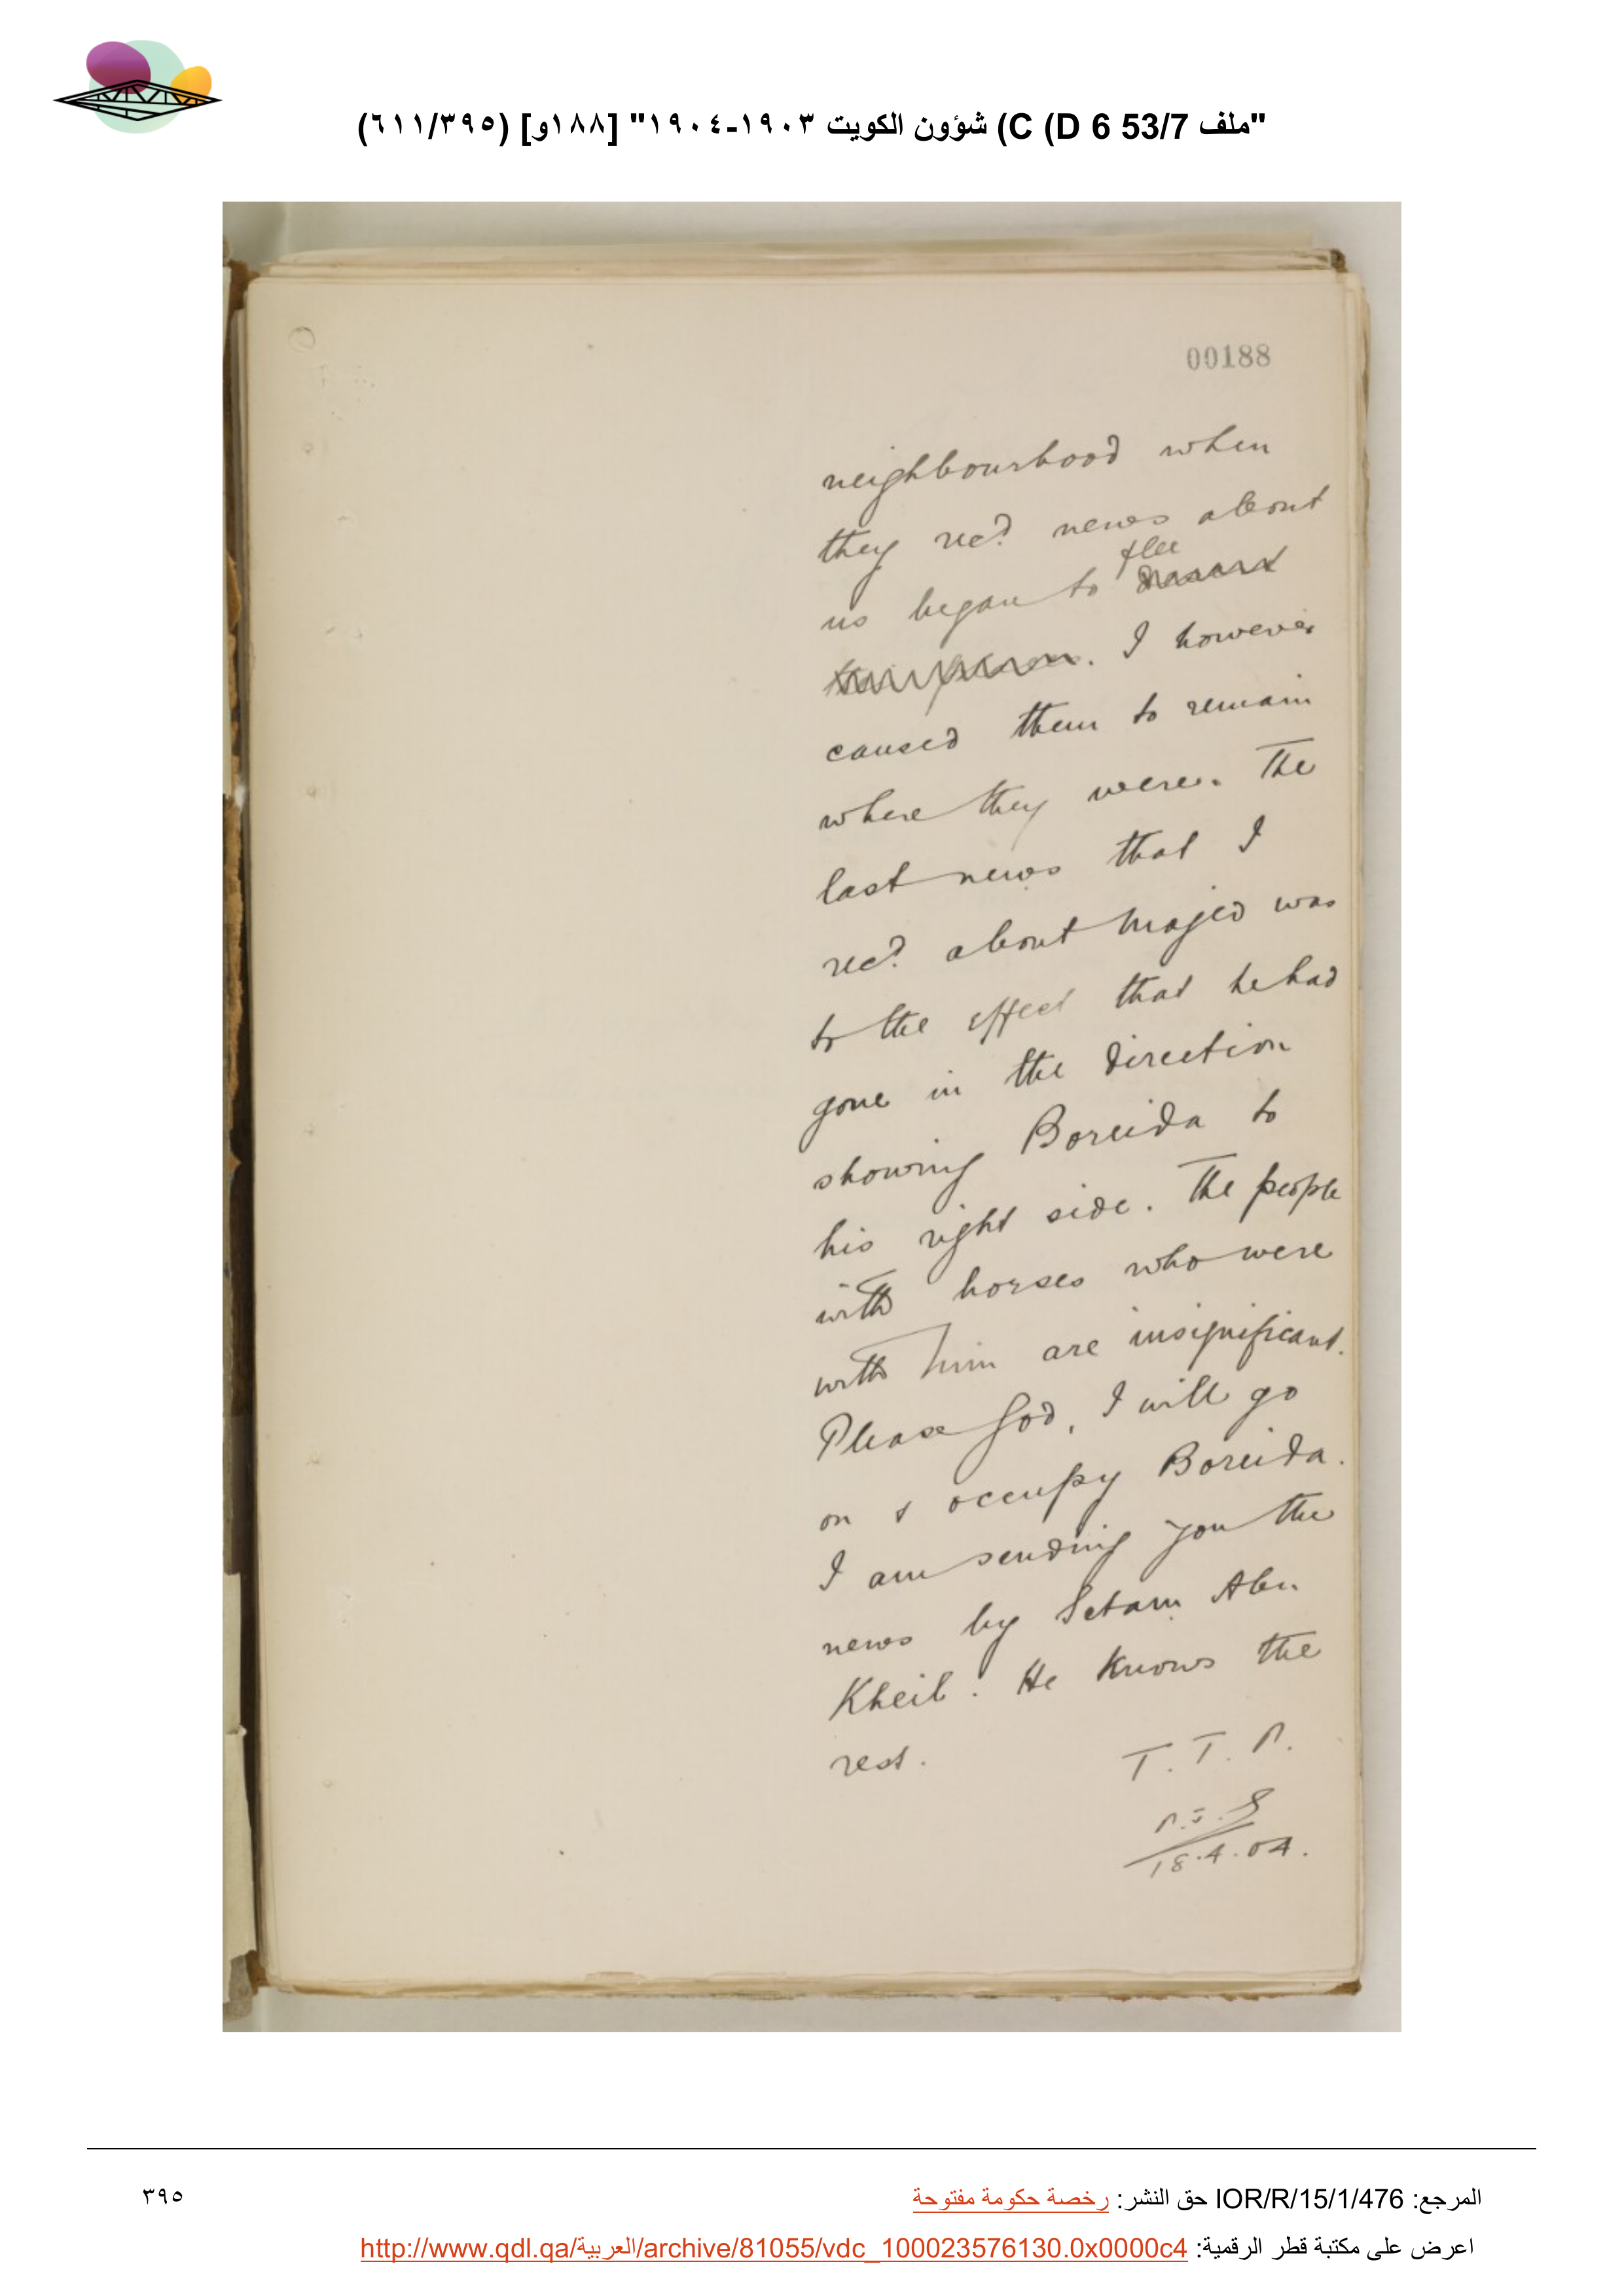 "ملف 53/7 D 6) C) شؤون الكويت ١٩٠٣-١٩٠٤" [١٨٨و] (٣٩٥/٦١١)
00188
neighbourhood when
they recd. news about
us began to flee
I however
caused them to remain
where they were. The
last news that I
recd. about Majed was
to the effect that he had
gone in the direction
showing Boreida to
his right side. The people
with horses who were
with him are insignificant.
Please God, I will go
on & occupy Boreida.
I am sending you the
news by Setam Abu
Kheil. He knows the
rest.
T. T. P.
18.4.04.
المرجع: IOR/R/15/1/476 حق النشر: رخصة حكومة مفتوحة
٣٩٥
اعرض على مكتبة قطر الرقمية: http://www.qdl.qa/العربية/archive/81055/vdc_100023576130.0x0000c4